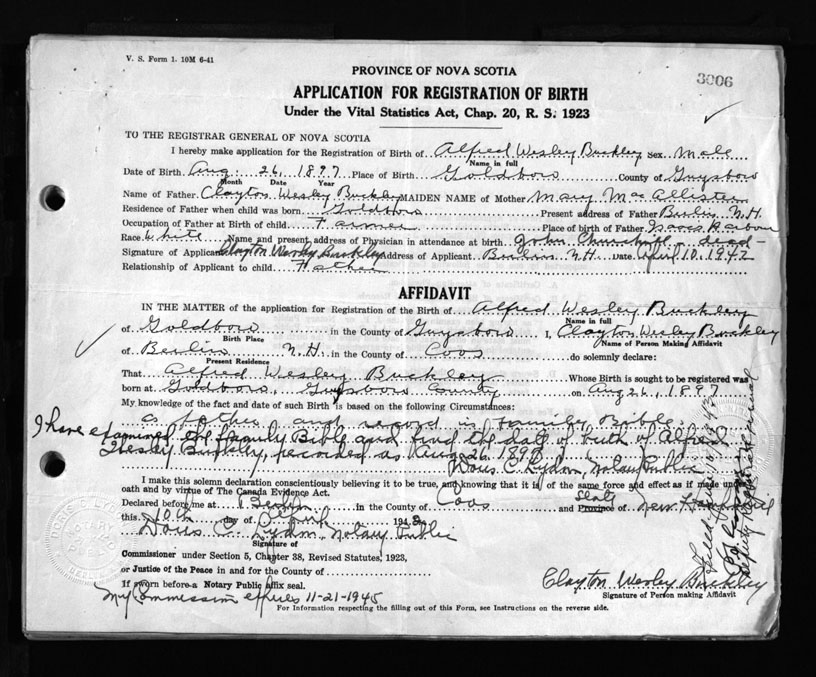 V. S. Form 1. 10M 6-41
3006
PROVINCE OF NOVA SCOTIA
APPLICATION FOR REGISTRATION OF BIRTH
Under the Vital Statistics Act, Chap. 20, R. S. 1923
TO THE REGISTRAR GENERAL OF NOVA SCOTIA
I hereby make application for the Registration of Birth of Alfred Wesley Buckley Sex Male
Name in full
Date of Birth Aug. 26, 1897 Place of Birth Goldboro County of Guysboro
Month Date Year
Name of Father Clayton Wesley Buckley MAIDEN NAME of Mother Mary MacAllister
Residence of Father when child was born Goldboro Present address of Father Berlin N.H.
Occupation of Father at Birth of child Farmer Place of birth of Father Isaacs Harbour
Race White Name and present address of Physician in attendance at birth John Churchill - dead -
Signature of Applicant Clayton Wesley Buckley Address of Applicant Berlin N.H. Date April 10, 1942
Relationship of Applicant to child Father
AFFIDAVIT
IN THE MATTER of the application for Registration of the Birth of Alfred Wesley Buckley
Name in full
of Goldboro in the County of Guysboro I, Clayton Wesley Buckley
Birth Place Name of Person Making Affidavit
of Berlin N.H. in the County of Coos do solemnly declare:
Present Residence
That Alfred Wesley Buckley Whose Birth is sought to be registered was
born at Goldboro, Guysboro County on Aug 26, 1897
My knowledge of the fact and date of such Birth is based on the following Circumstances:
a father and record in Family Bible.
I have examined the family Bible and find the date of birth of Alfred
Wesley Buckley, recorded as Aug 26 1897
Doris C. Lydon, Notary Public
I make this solemn declaration conscientiously believing it to be true, and knowing that it is of the same force and effect as if made under
oath and by virtue of The Canada Evidence Act.
Declared before me at Berlin in the County of Coos and State Province of New Hampshire
this 10th day of April 1942
Doris C. Lydon, Notary Public
Signature of
Commissioner under Section 5, Chapter 38, Revised Statutes, 1923,
or Justice of the Peace in and for the County of
If sworn before a Notary Public affix seal.
My Commission expires 11-21-1945
Clayton Wesley Buckley
Signature of Person making Affidavit
For Information respecting the filling out of this Form, see Instructions on the reverse side.